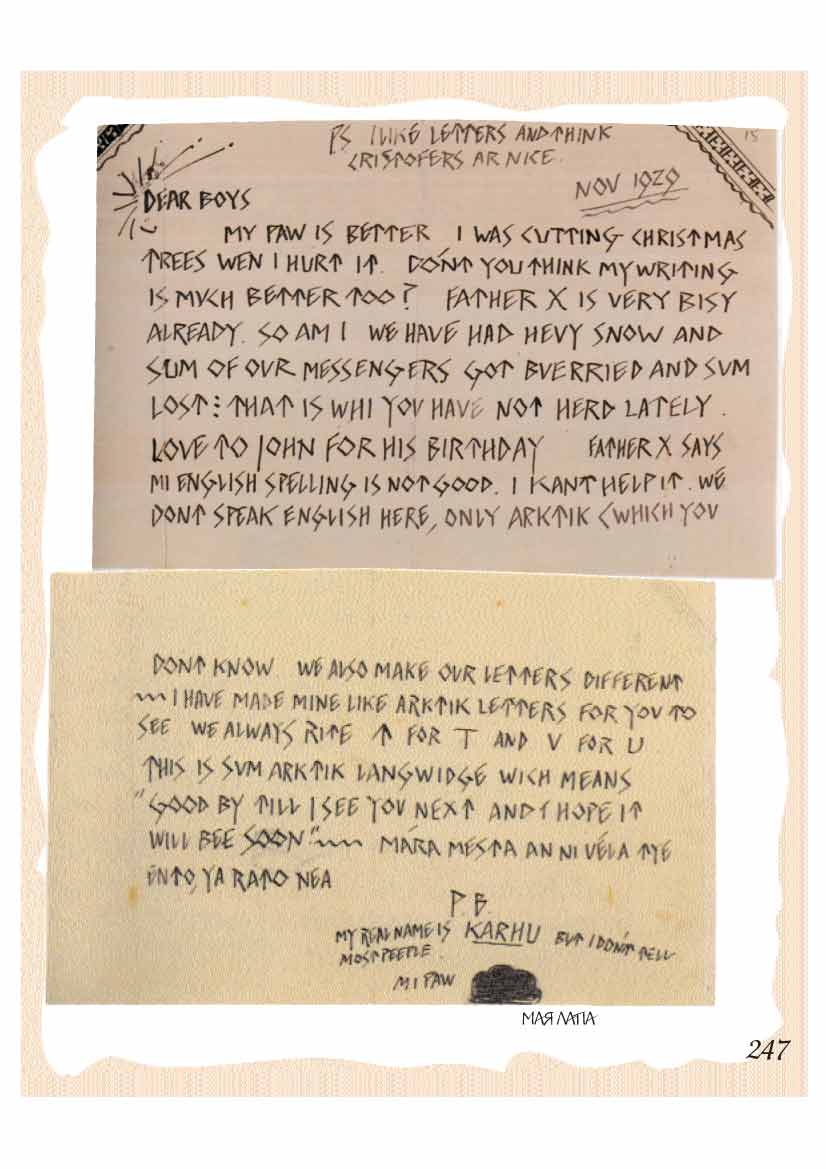 PS I LIKE LETTERS AND THINK
CRISTOFERS AR NICE.
15
NOV 1929
DEAR BOYS
MY PAW IS BETTER I WAS CUTTING CHRISTMAS
TREES WEN I HURT IT. DON'T YOU THINK MY WRITING
IS MVCH BETTER TOO? FATHER X IS VERY BISY
ALREADY. SO AM I WE HAVE HAD HEVY SNOW AND
SUM OF OVR MESSENGERS GOT BVERRIED AND SVM
LOST: THAT IS WHI YOU HAVE NOT HERD LATELY.
LOVE TO JOHN FOR HIS BIRTHDAY FATHER X SAYS
MI ENGLISH SPELLING IS NOT GOOD. I KANT HELP IT. WE
DONT SPEAK ENGLISH HERE, ONLY ARKTIK (WHICH YOU
DONT KNOW WE ALSO MAKE OUR LETTERS DIFFERENT
~~ I HAVE MADE MINE LIKE ARKTIK LETTERS FOR YOU TO
SEE WE ALWAYS RITE ↑ FOR T AND V FOR U
THIS IS SVM ARKTIK LANGWIDGE WICH MEANS
"GOOD BY TILL I SEE YOU NEXT AND I HOPE IT
WILL BEE SOON." ~~ MÁRA MESTA AN NI VÉLA TYE
ENTO, YA RATO NEA
P.B.
MY REAL NAME IS KARHU BUT I DON'T TELL
MOST PEEPLE.
MI PAW
МАЯ ЛАПА
247